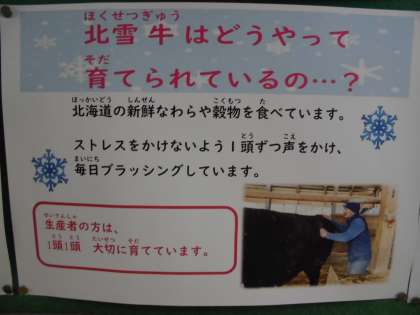 ほくせつぎゅう
北雪牛はどうやって
そだ
育てられているの…?
ほっかいどう しんせん こくもつ た
北海道の新鮮なわらや穀物を食べています。
とう こえ
ストレスをかけないよう1頭ずつ声をかけ、
まいにち
毎日ブラッシングしています。
せいさんしゃ
生産者の方は、
とう とう たいせつ そだ
1頭1頭 大切に育てています。